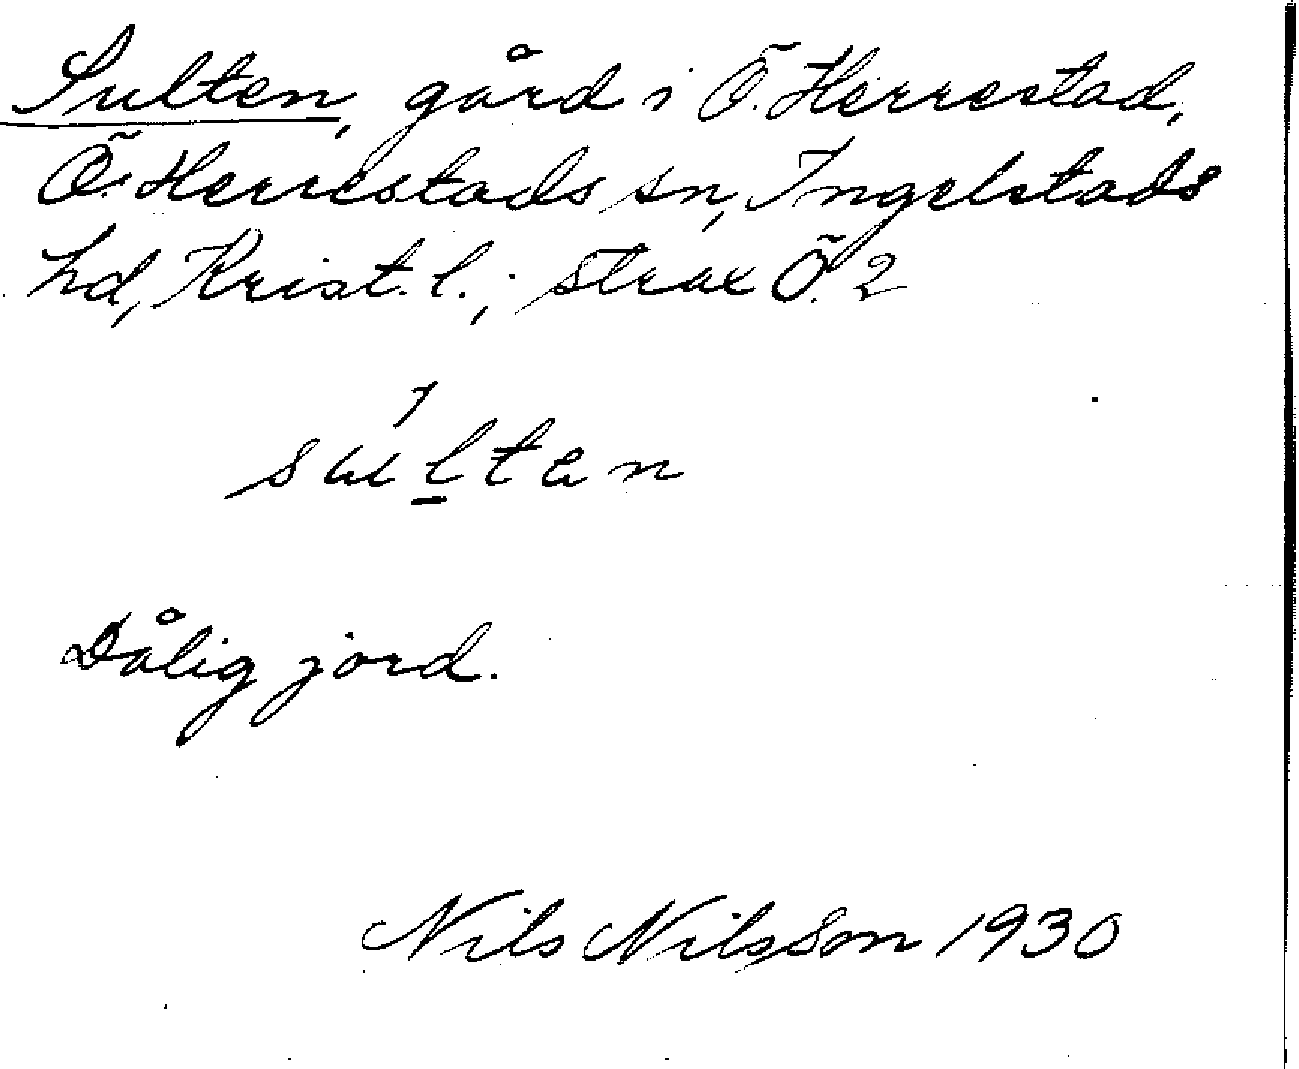 Sulten, gård i Ö. Herrestad,
Ö. Herrestads sn, Ingelstads
hd, Krist. l.; strax Ö. 2
súl̲tan
Dålig jord.
Nils Nilsson 1930